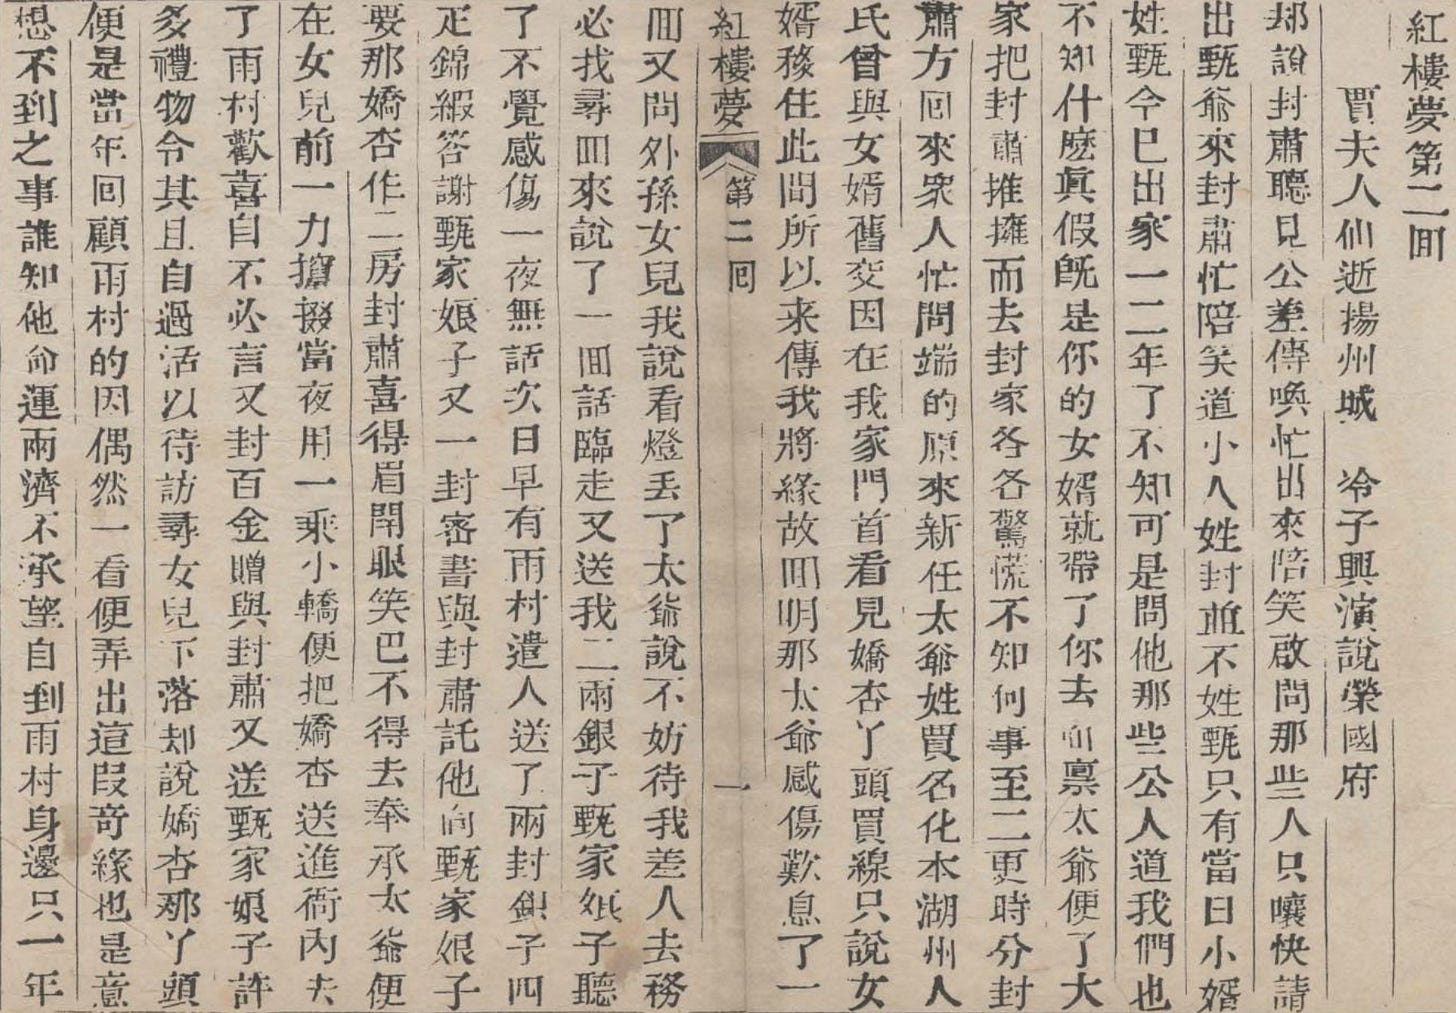 紅樓夢第二囬
賈夫人仙逝揚州城　冷子興演說榮國府
却說封肅聽見公差傳喚忙出來陪笑啟問那些人只嚷快請
出甄爺來封肅忙陪笑道小人姓封並不姓甄只有當日小婿
姓甄今已出家一二年了不知可是問他那些公人道我們也
不知什麽眞假旣是你的女婿就帶了你去面禀太爺便了大
家把封肅推擁而去封家各各驚慌不知何事至二更時分封
肅方回來衆人忙問端的原來新任太爺姓賈名化本湖州人
氏曾與女婿舊交因在我家門首看見嬌杏丫頭買線只說女
婿移住此間所以来傳我將緣故囬明那太爺感傷歎息了一
紅樓夢　第二回　一
囬又問外孫女兒我說看燈丢了太爺說不妨待我差人去務
必找尋囬來說了一囬話臨走又送我二兩銀子甄家娘子聽
了不覺感傷一夜無話次日早有雨村遣人送了兩封銀子四
疋錦緞答謝甄家娘子又一封密書與封肅託他向甄家娘子
要那嬌杏作二房封肅喜得眉開眼笑巴不得去奉承太爺便
在女兒前一力攛掇當夜用一乘小轎便把嬌杏送進衙內去
了雨村歡喜自不必言又封百金贈與封肅又送甄家娘子許
多禮物令其且自過活以待訪尋女兒下落却說嬌杏那丫頭
便是當年回顧雨村的因偶然一看便弄出這叚奇緣也是意
想不到之事誰知他命運兩濟不承望自到雨村身邊只一年